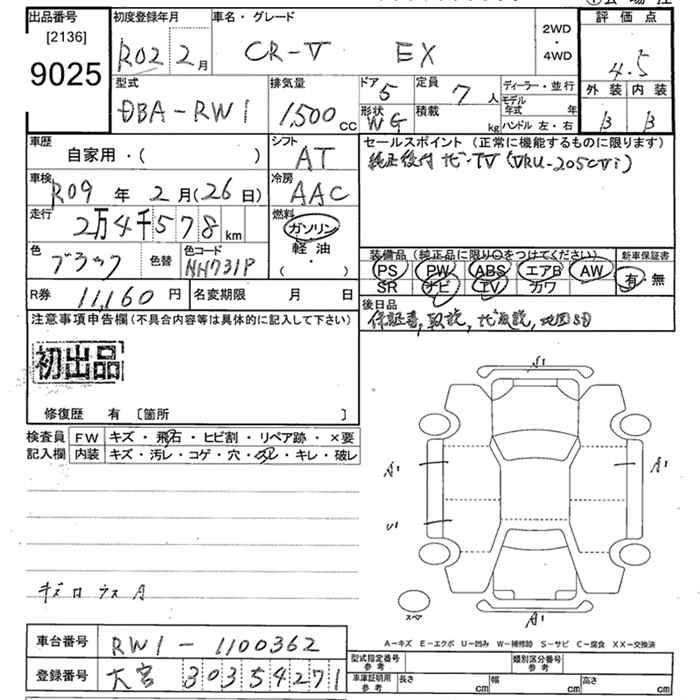 出品番号
[2136]
9025
初度登録年月
R02 2月
車名・グレード
CR-V EX
2WD
・
4WD
評価点
4.5
外装 内装
B B
型式
DBA-RW1
排気量
1500 cc
ドア 5
定員 7 人
形状 WG
積載 kg
ディーラー・並行
モデル年式 年
ハンドル 左・右
車歴
自家用・( )
シフト
AT
セールスポイント (正常に機能するものに限ります)
純正後付ナビ・TV (VRU-205CVi)
車検
R09 年 2 月 (26 日)
冷房
AAC
走行
2万4千578 km
燃料
ガソリン
軽油
・
( )
色
ブラック
色替
色コード
NH731P
装備品 (純正品に限り○をつけてください)
PS PW ABS エアB AW
SR ナビ TV カワ
新車保証書
有・無
R券 11,160 円
名変期限 月 日
後日品
保証書, 取説, ナビ取説, 地図SD
注意事項申告欄 (不具合内容等は具体的に記入して下さい)
初出品
修復歴 有 〔箇所 〕
検査員
記入欄
FW キズ・飛石・ヒビ割・リペア跡・×要
内装 キズ・汚レ・コゲ・穴・スレ・キレ・破レ
A1
A1
A1
U1
A1
スペア
A-キズ E-エクボ U-凹み W-補修跡 S-サビ C-腐食 XX-交換済
車台番号 RW1-1100362
登録番号 大宮 303 5 4271
型式指定番号
参考
類別区分番号
参考
車庫証明用
参考
長さ cm 幅 cm 高さ cm